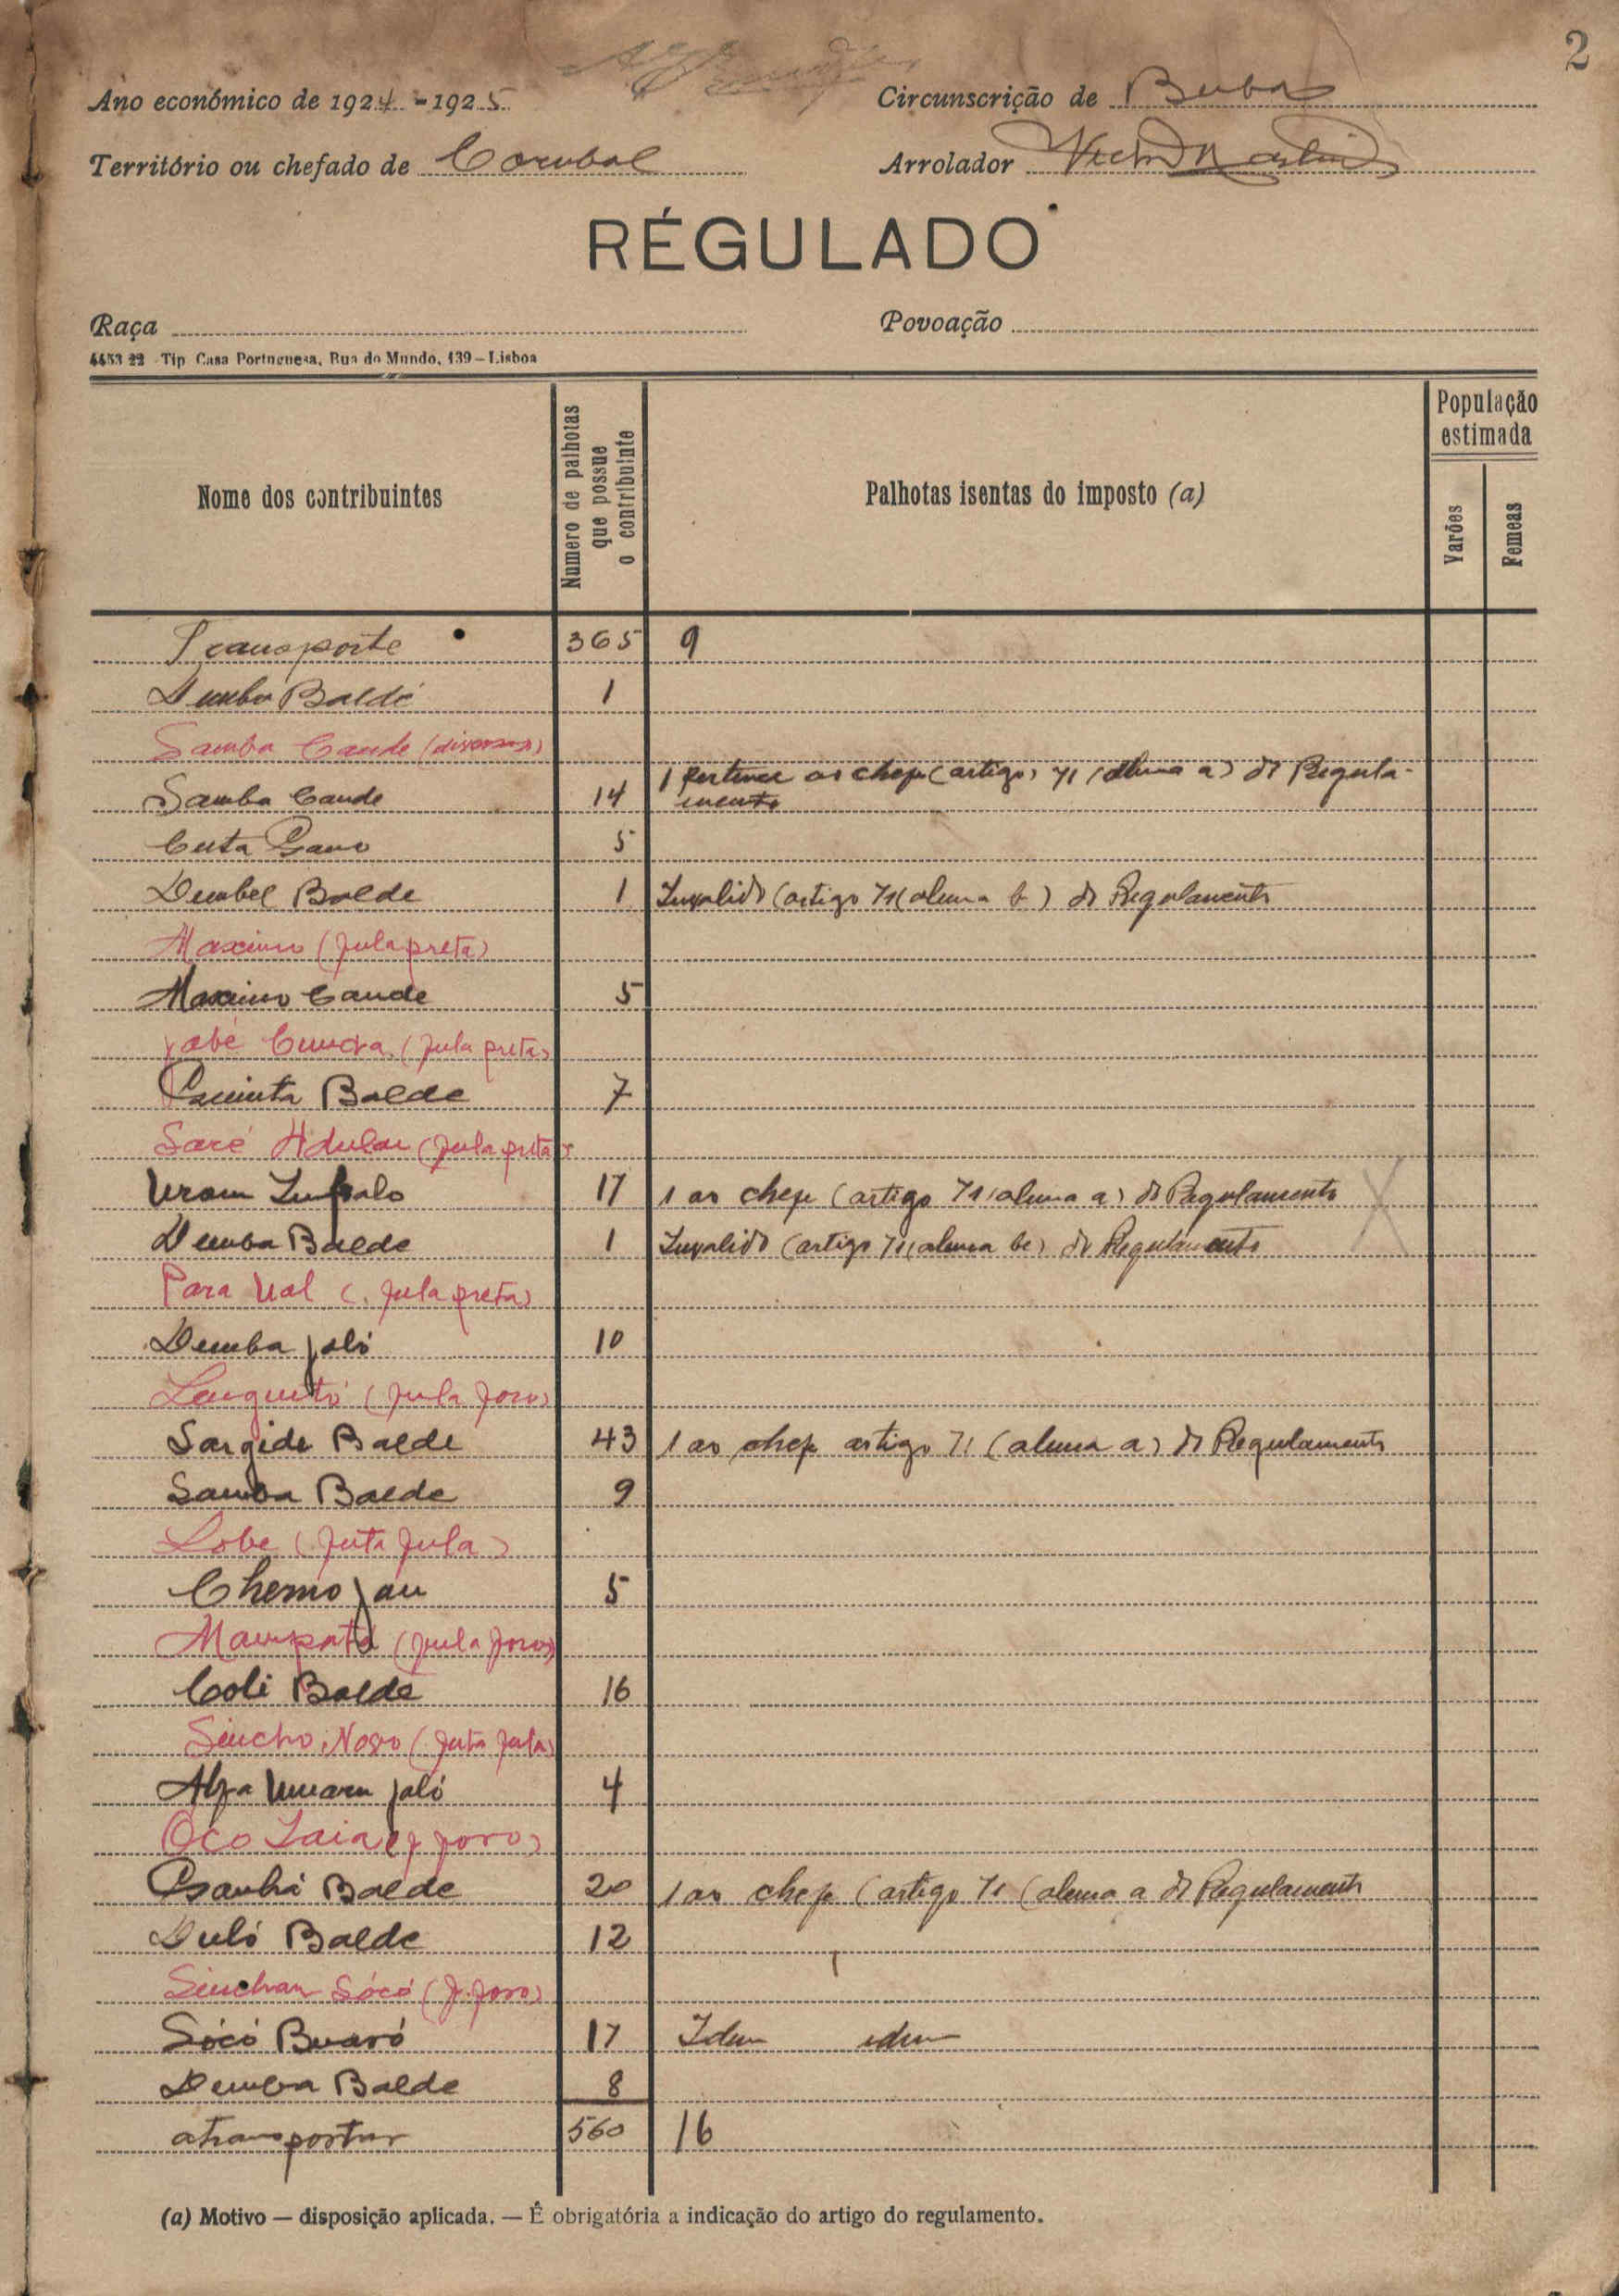 2
Ano económico de 1924-1925
Circunscrição de Buba
Território ou chefado de Corubal
Arrolador
RÉGULADO
Raça
Povoação
4453 22 Tip Casa Portuguesa, Rua do Mundo, 139 – Lisboa
Nome dos contribuintes
Numero de palhotas que possue o contribuinte
Palhotas isentas do imposto (a)
População estimada
Varões
Femeas
Transporte 365 9
Demba Baldé 1
Samba Cande (diversos)
1 pertence ao chefe (artigo 71 (alinea a) do Regula-
Samba Cande 14 mento
Cuta Gano 5
Dembel Balde 1 Invalido (artigo 71 (alinea b) do Regulamento
Maximo (fula preta)
Maximo Cande 5
(fula preta)
Balde 7
Saré Adulai (fula preta)
17 1 ao chefe (artigo 71 (alinea a) do Regulamento
Demba Balde 1 Invalido (artigo 71 (alinea b) do Regulamento
Para Ual (fula preta)
Demba Jaló 10
(fula foro)
Sargide Balde 43 1 ao chefe artigo 71 (alinea a) do Regulamento
Samba Balde 9
Lobe (futa fula)
Cherno Jau 5
Mampatá (fula foro)
Coli Balde 16
Sincho Novo (futa fula)
Alfa Umaru Jaló 4
Oco Iaia (f foro)
Balde 20 1 ao chefe (artigo 71 (alinea a do Regulamento
Duló Balde 12
Sinchan Sócó (f. foro)
Sócó Buaró 17 Idem idem
Demba Balde 8
a transportar 560 16
(a) Motivo — disposição aplicada. — É obrigatória a indicação do artigo do regulamento.